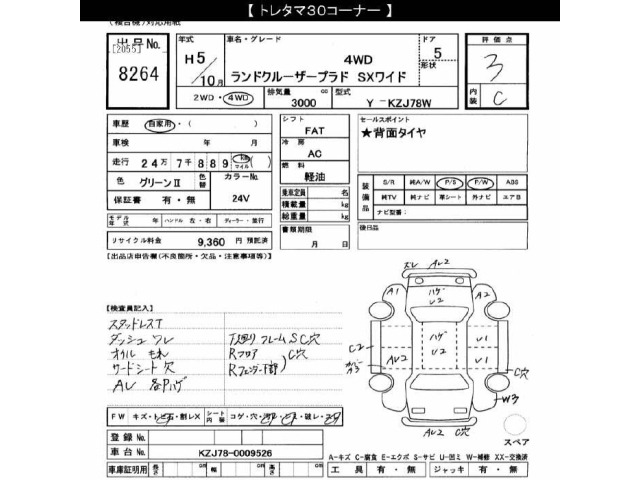 【 トレタマ30コーナー 】
(複合機)対応用紙
出品No.
[2055]
8264
年式
H5/10月
車名・グレード
4WD
ランドクルーザープラド SXワイド
ドア
5
形状
評価点
3
内装
C
2WD・4WD
排気量
3000
cc
型式
Y -KZJ78W
車歴 自家用・( )
車検 年 月
走行 24万7千889 km マイル ( )
色 グリーンⅡ 色替 カラーNo.
保証書 有・無 24V
モデル年式 年 ハンドル 左・右 ディーラー・並行
リサイクル料金 9,360 円 預託済
シフト
FAT
冷房
AC
燃料
軽油
乗車定員 名
積載量 kg
総重量 kg
書類期限
月 日
セールスポイント
★背面タイヤ
装備品
S/R 純A/W P/S P/W ABS
純TV 純ナビ 革シート 外ナビ エアB
ナビ型番:
後日品
【出品店申告欄(不良箇所・欠品・注意事項等)】
【検査員記入】
スタッドレスT
ダッシュ ワレ
オイル もれ
サードシート 穴
AU 各Pハゲ
下廻り フレーム S C穴
Rフロア C穴
Rフェンダー下部
ズレ AU2
A1
ハゲ
U2
A2
C2
AU2
ハゲ
U2
U1
U1
C穴
W3
AU2 C穴
スペア
FW キズ・トビ石・割レX シート内装 コゲ・穴・汚レ・スレ・破レ・
登録No.
車台No. KZJ78-0009526
車庫証明用 長さ cm 幅 cm 高さ cm
A-キズ C-腐食 E-エクボ S-サビ U-凹ミ W-補修 XX-交換済
工具 有・無 ジャッキ 有・無